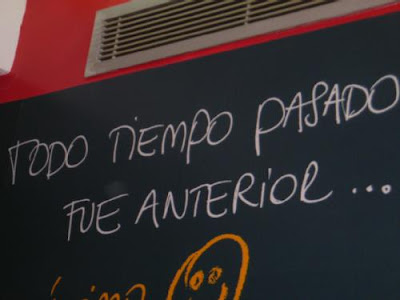 TODO TIEMPO PASADO
FUE ANTERIOR...